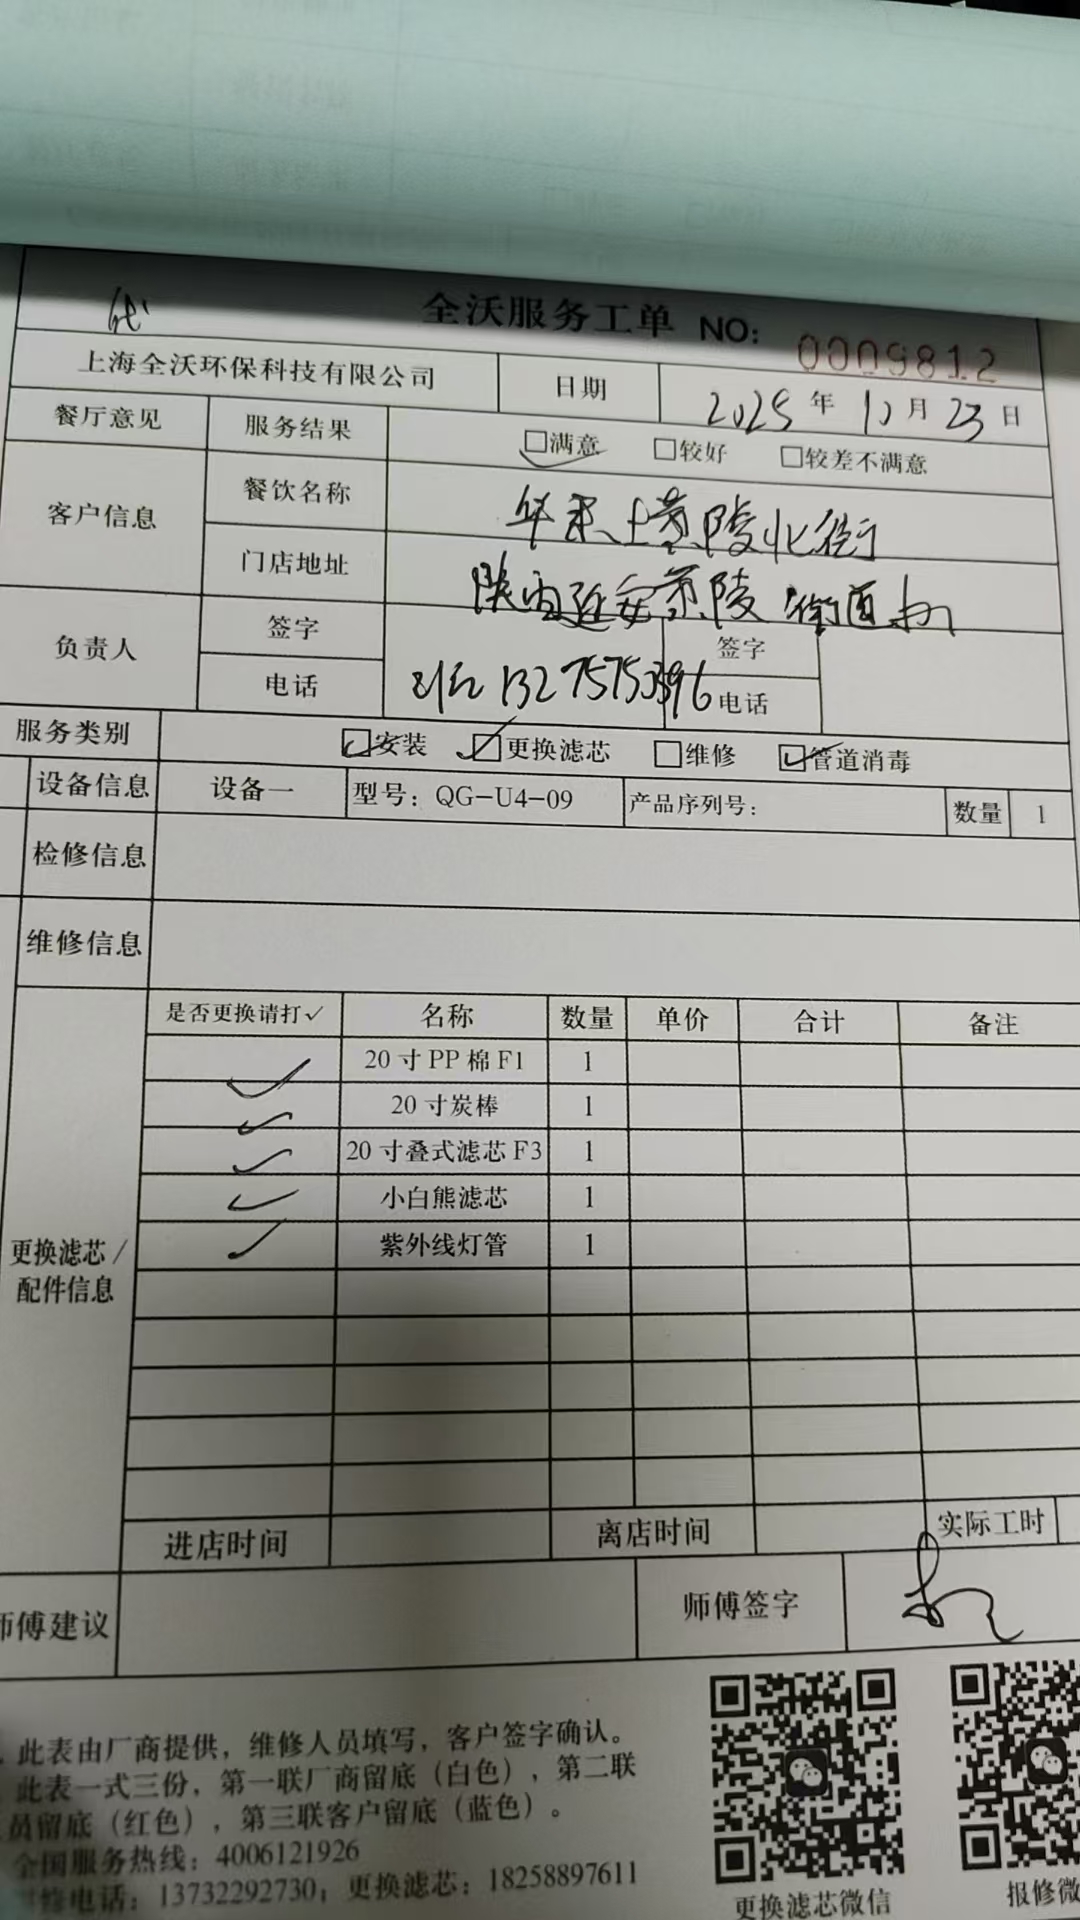 全沃服务工单 NO: 0009812
上海全沃环保科技有限公司 日期 2025年10月23日
餐厅意见 服务结果 □满意 □较好 □较差不满意
客户信息 餐饮名称 华莱士黄陵北街
门店地址 陕西延安黄陵 街道办
负责人 签字 签字
电话 13275753396 电话
服务类别 □安装 □更换滤芯 □维修 □管道消毒
设备信息 设备一 型号：QG-U4-09 产品序列号： 数量 1
检修信息
维修信息
是否更换请打✓ 名称 数量 单价 合计 备注
✓ 20寸PP棉F1 1
✓ 20寸炭棒 1
✓ 20寸叠式滤芯F3 1
✓ 小白熊滤芯 1
✓ 紫外线灯管 1
更换滤芯/
配件信息
进店时间 离店时间 实际工时
师傅建议 师傅签字
此表由厂商提供，维修人员填写，客户签字确认。
此表一式三份，第一联厂商留底（白色），第二联
员留底（红色），第三联客户留底（蓝色）。
全国服务热线：4006121926
电话：13732292730；更换滤芯：18258897611
更换滤芯微信 报修微